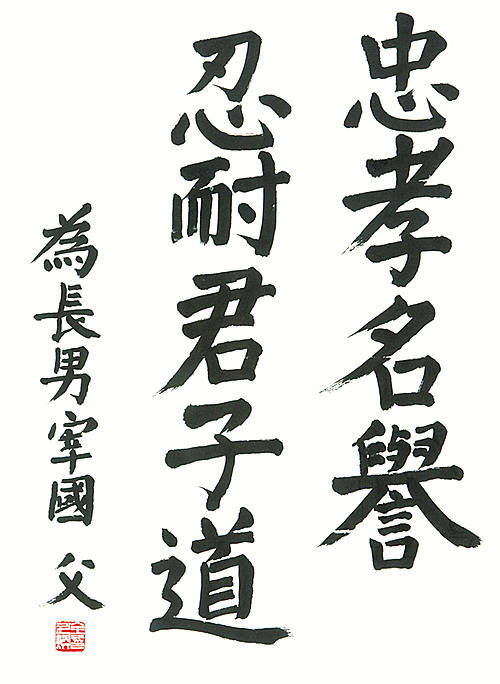 忠孝名譽
忍耐君子道
為長男宰國 父